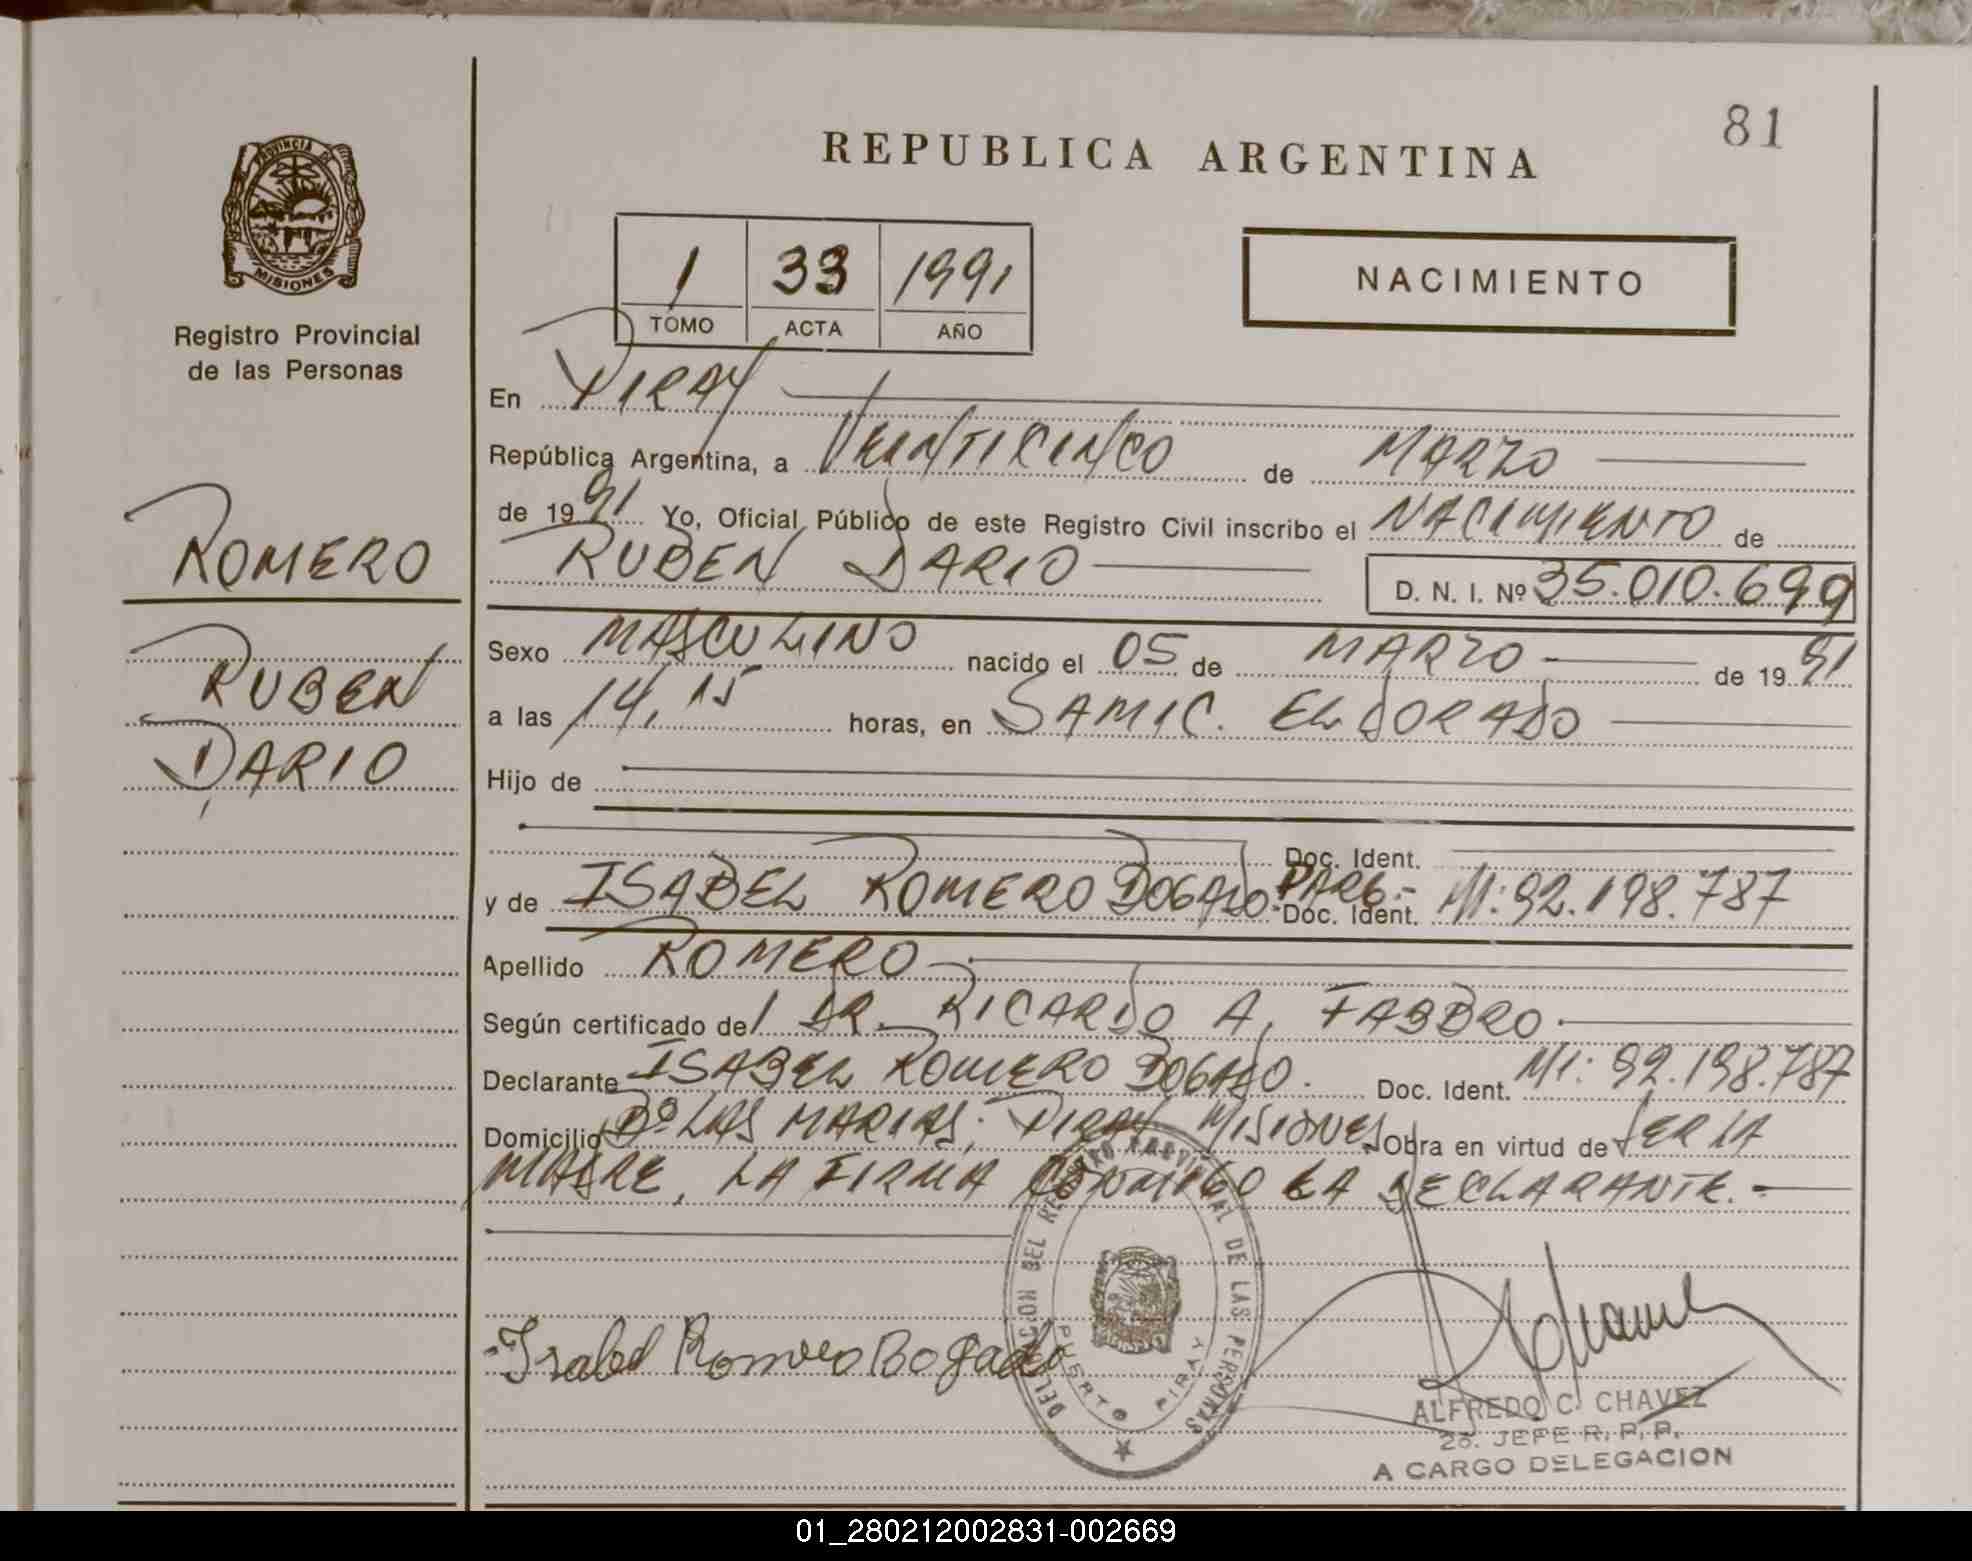 81
REPUBLICA ARGENTINA
PROVINCIA DE
MISIONES
Registro Provincial
de las Personas
1 33 1991
TOMO ACTA AÑO
NACIMIENTO
ROMERO
RUBEN
DARIO
En PIRAY
República Argentina, a VEINTICINCO de MARZO
de 1991 Yo, Oficial Público de este Registro Civil inscribo el NACIMIENTO de
RUBEN DARIO D. N. I. Nº 35.010.699
Sexo MASCULINO nacido el 05 de MARZO de 1991
a las 14,15 horas, en SAMIC. ELDORADO
Hijo de
Doc. Ident.
y de ISABEL ROMERO BOGADO. PARG.- Doc. Ident. MI: 92.198.787
Apellido ROMERO
Según certificado del DR. RICARDO A. FABBRO
Declarante ISABEL ROMERO BOGADO. Doc. Ident. MI: 92.198.787
Domicilio Bº LAS MARIAS; PIRAY MISIONES Obra en virtud de SER LA
MADRE, LA FIRMA CONMIGO LA DECLARANTE.-
DELEGACION DEL REGISTRO PROVINCIAL DE LAS PERSONAS
PUERTO PIRAY
Isabel Romero Bogado
ALFREDO C. CHAVEZ
2o. JEFE R. P. P.
A CARGO DELEGACION
01_280212002831-002669